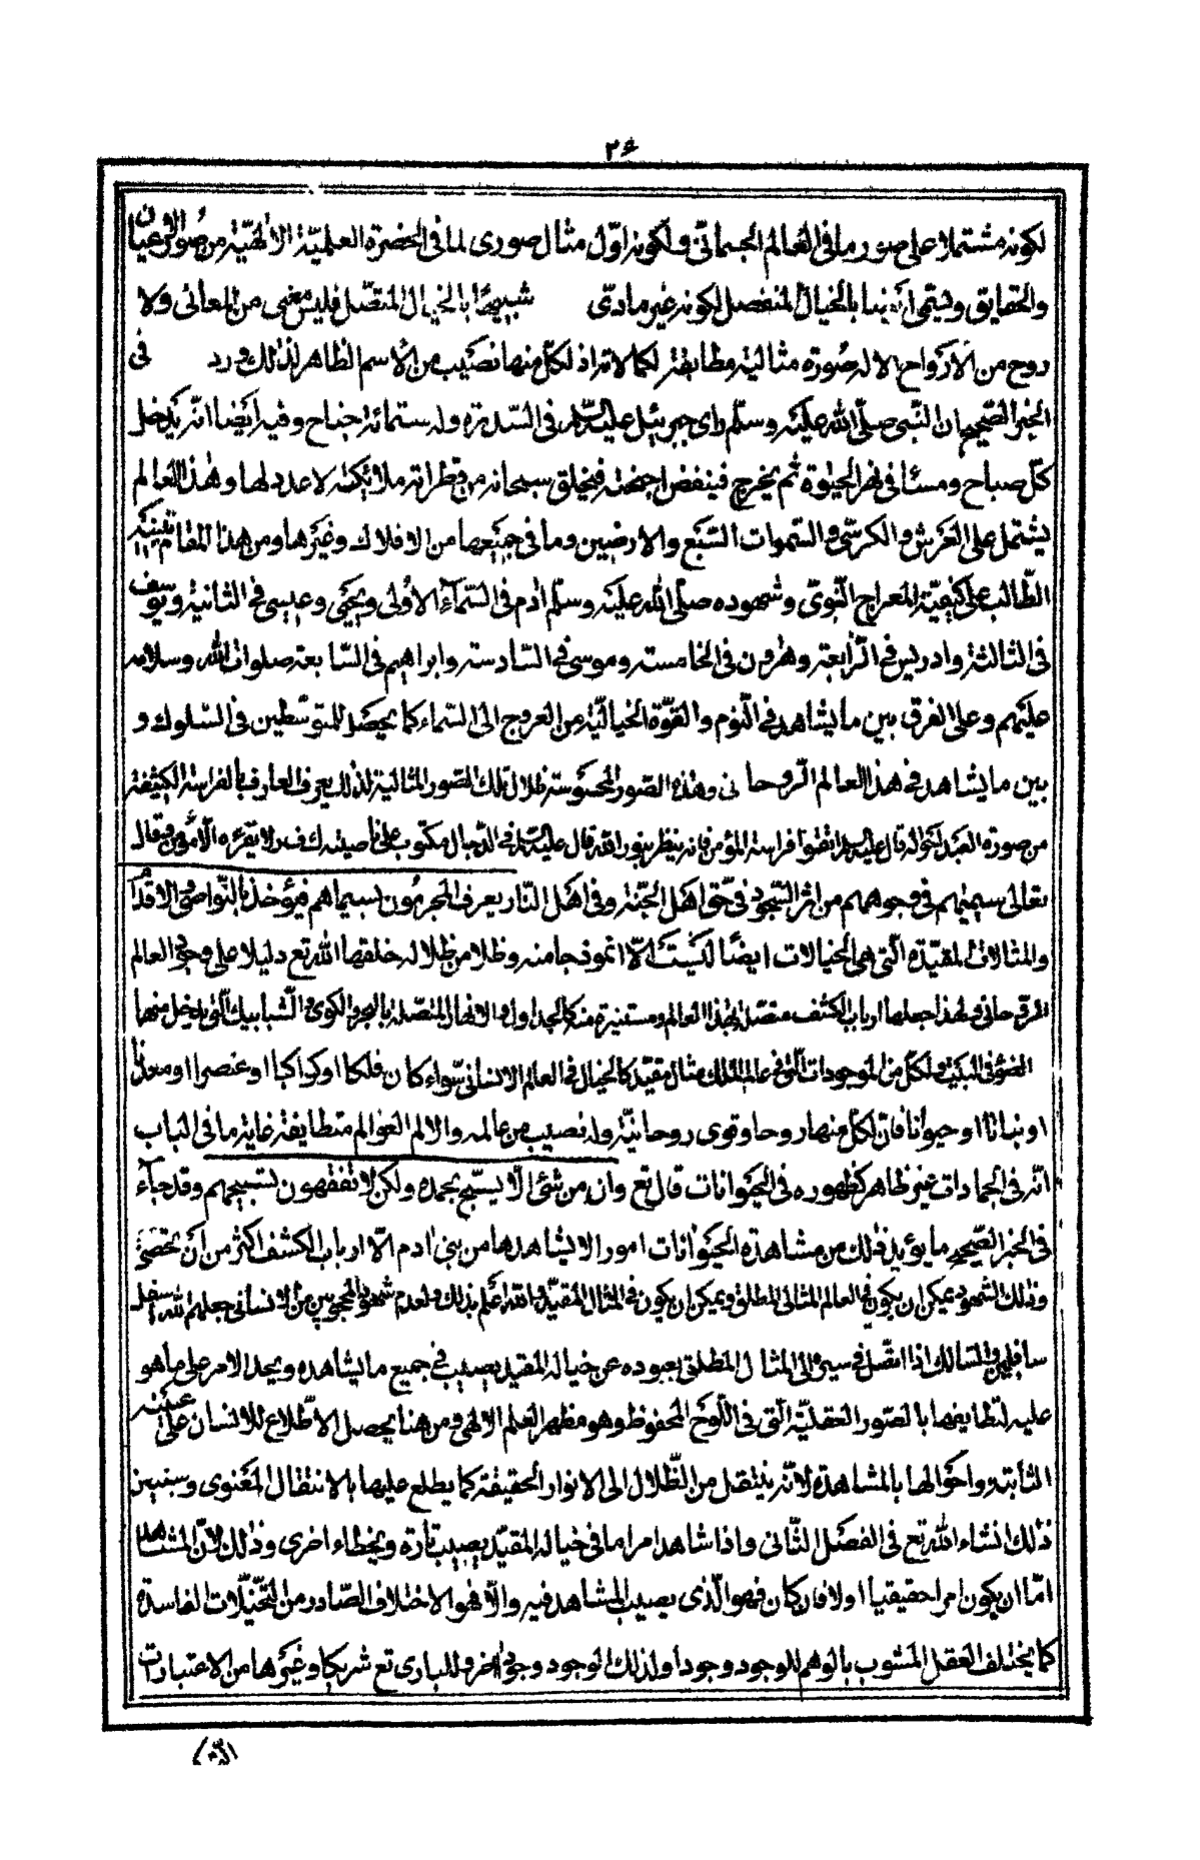 ٣۶
لكونه مشتملا على صور ما فى العالم الجسمانّى ولكونه اوّل مثال صورى لما فى الحضرة العلميّة الالٰهيّة من صُوَر الاعيان
والحقايق ويسمّى ايضا بالخيال المنفصل لكونه غير مادّى شبيهًا بالخيال المتصّل فليس معنى من المعانى ولا
روح من الارواح الا له صُورة مثالية مطابقة لكمالاته اذ لكلّ منها نصَيب من الاسم الظاهر لذلك ورد فى
الخبر الصّحيح ان النّبى صلّى الله عليَه وسلّم راى جبرئيل عليه السّلام فى السّدرة وله ستمائة جناح وفيه ايَضا انّه يَدخل
كلّ صباح ومساء فى نهر الحيٰوة ثم يخرج فينفض اجنحته فيخلق سبحانه من قطراته ملائكة لا عدد لها وهٰذا العالم
يشتمل على العَرش والكرسّى والسّموات السّبَع والارضين وما فى جميَعها من الافلاك وغيَرها ومن هذا المقام يتنبه
الطّالب على كيفيّة المعراج النّبوىّ وشهوده صلّى الله عليَه وسلّم ادم فى السّمآء الاُولى ويَحيٰى وعيسى فى الثانية ويوسف
فى الثالثة وادريس فى الرّابعة وهٰرون فى الخامسة وموسى فى السّادسة وابراهيم فى السّابعة صلوات الله وسلامه
عليَهم وعلى الفرق بين ما يشاهد فى النّوم والقوّة الخياليّة من العروج الى السّماء كما يحصَل للمتوسّطين فى السّلوك و
بين ما يشاهد فى هذا العالم الرّوحانى وهٰذه الصّور المحسُوسة ظلال تلك الصّور المثالية لذلك يعرف العارف بالفراسة الكشفيّة
من صورة العبَد احَواله قال عليه السلام اتقوا فراسة المؤمن فانه ينظر بنور الله قال عليه السّلام فى الدّجال مكتوب على ناصيته ك ف ر لا يقرَءه الّا مؤمن وقال
تعالى سيمٰيهم فى وجوههم من اثر السّجود فى حّق اهَل الجّنة وفى اهَل النّار يعرف المجرمُون بسيماهم فيؤخذ بالنّواصى والاقدام
والمثالات المقيّدة الّتى هى الخيالات ايضًا لَيسَت الّا انموذجا منه وظلا من ظلاله خلقها الله تع دليلا على وجود العالم
الرّوحانى ولهٰذا جعلها ارباب الكشف متصّلة بهٰذا العالم ومستنيرة منه كالجداول والانهار المتصّلة بالبحر والكوى والشّبابيك الّتى يدخل منها
الضّوء فى البيَت ولكلّ من الموجودات الّتى فى عالم الملك مثال مقيّد كالخيال فى العالم الانسانى سّواء كان فلكا او كوكبا او عنصرا او معدنا
او نباتا او حيوانا فانّ لكلّ منها روحا وقوى روحانيّة وله نصيب من عالمه والا لم العوالم متطابقة غاية ما فى الباب
انّه فى الجمادات غير ظاهر كظهوره فى الحيَوانات قال تع وان من شئ الّا يسبّح بحمده ولكن لا تفقهون تسبيحهم وقد جآء
فى الخبر الصّحيح ما يؤيد ذٰلك من مشاهدة الحيَوانات امورا لا يشاهدها من بنى ادم الّا ارباب الكشف اكثر من ان يحصى
وذٰلك الشّهود يمكن ان يكون فى العالم المثالى المطلق ويمكن ان يكون فى المثال المقيّد والله اعلم بذلك ولعدم شهود المحجوبين من الانسانى جعلهم الله اسفل
سافلين والسّالك اذا اتصّل فى سيره الى المثال المطلق بعبوره عن خياله المقيد يصيب فى جميع ما يشاهده ويجد الامر على ما هو
عليه لتطابقها بالصّور العقليّة الّتى فى اللّوح المحفوظ وهو مظهر العلم الالٰهى ومن هنا يحصل الاطّلاع للانسان على عينه
الثابتة واحَوالها بالمشاهدة لانّه ينتقل من الظّلال الى الانوار الحقيقة كما يطلع عليها بالانتقال المعَنوى وسنبين
ذٰلك انشاء الله تع فى الفصَل الثّانى واذا شاهد امرا ما فى خياله المقيّد يصيب تارة ويخطاء اخرى وذٰلك لانّ المشاهد
امّا ان يكون امرا حقيقيا اولا فان كان فهو الّذى يصيب المشاهد فيه والّا فهو الاختلاف الصّادر من التّخيّلات الفاسدة
كما يختلف العقل المشوب بالوهم للوجود وجودا ولذلك الوجود وجودا اخر وللبارى تع شريكا وغيَرها من الاعتبارات